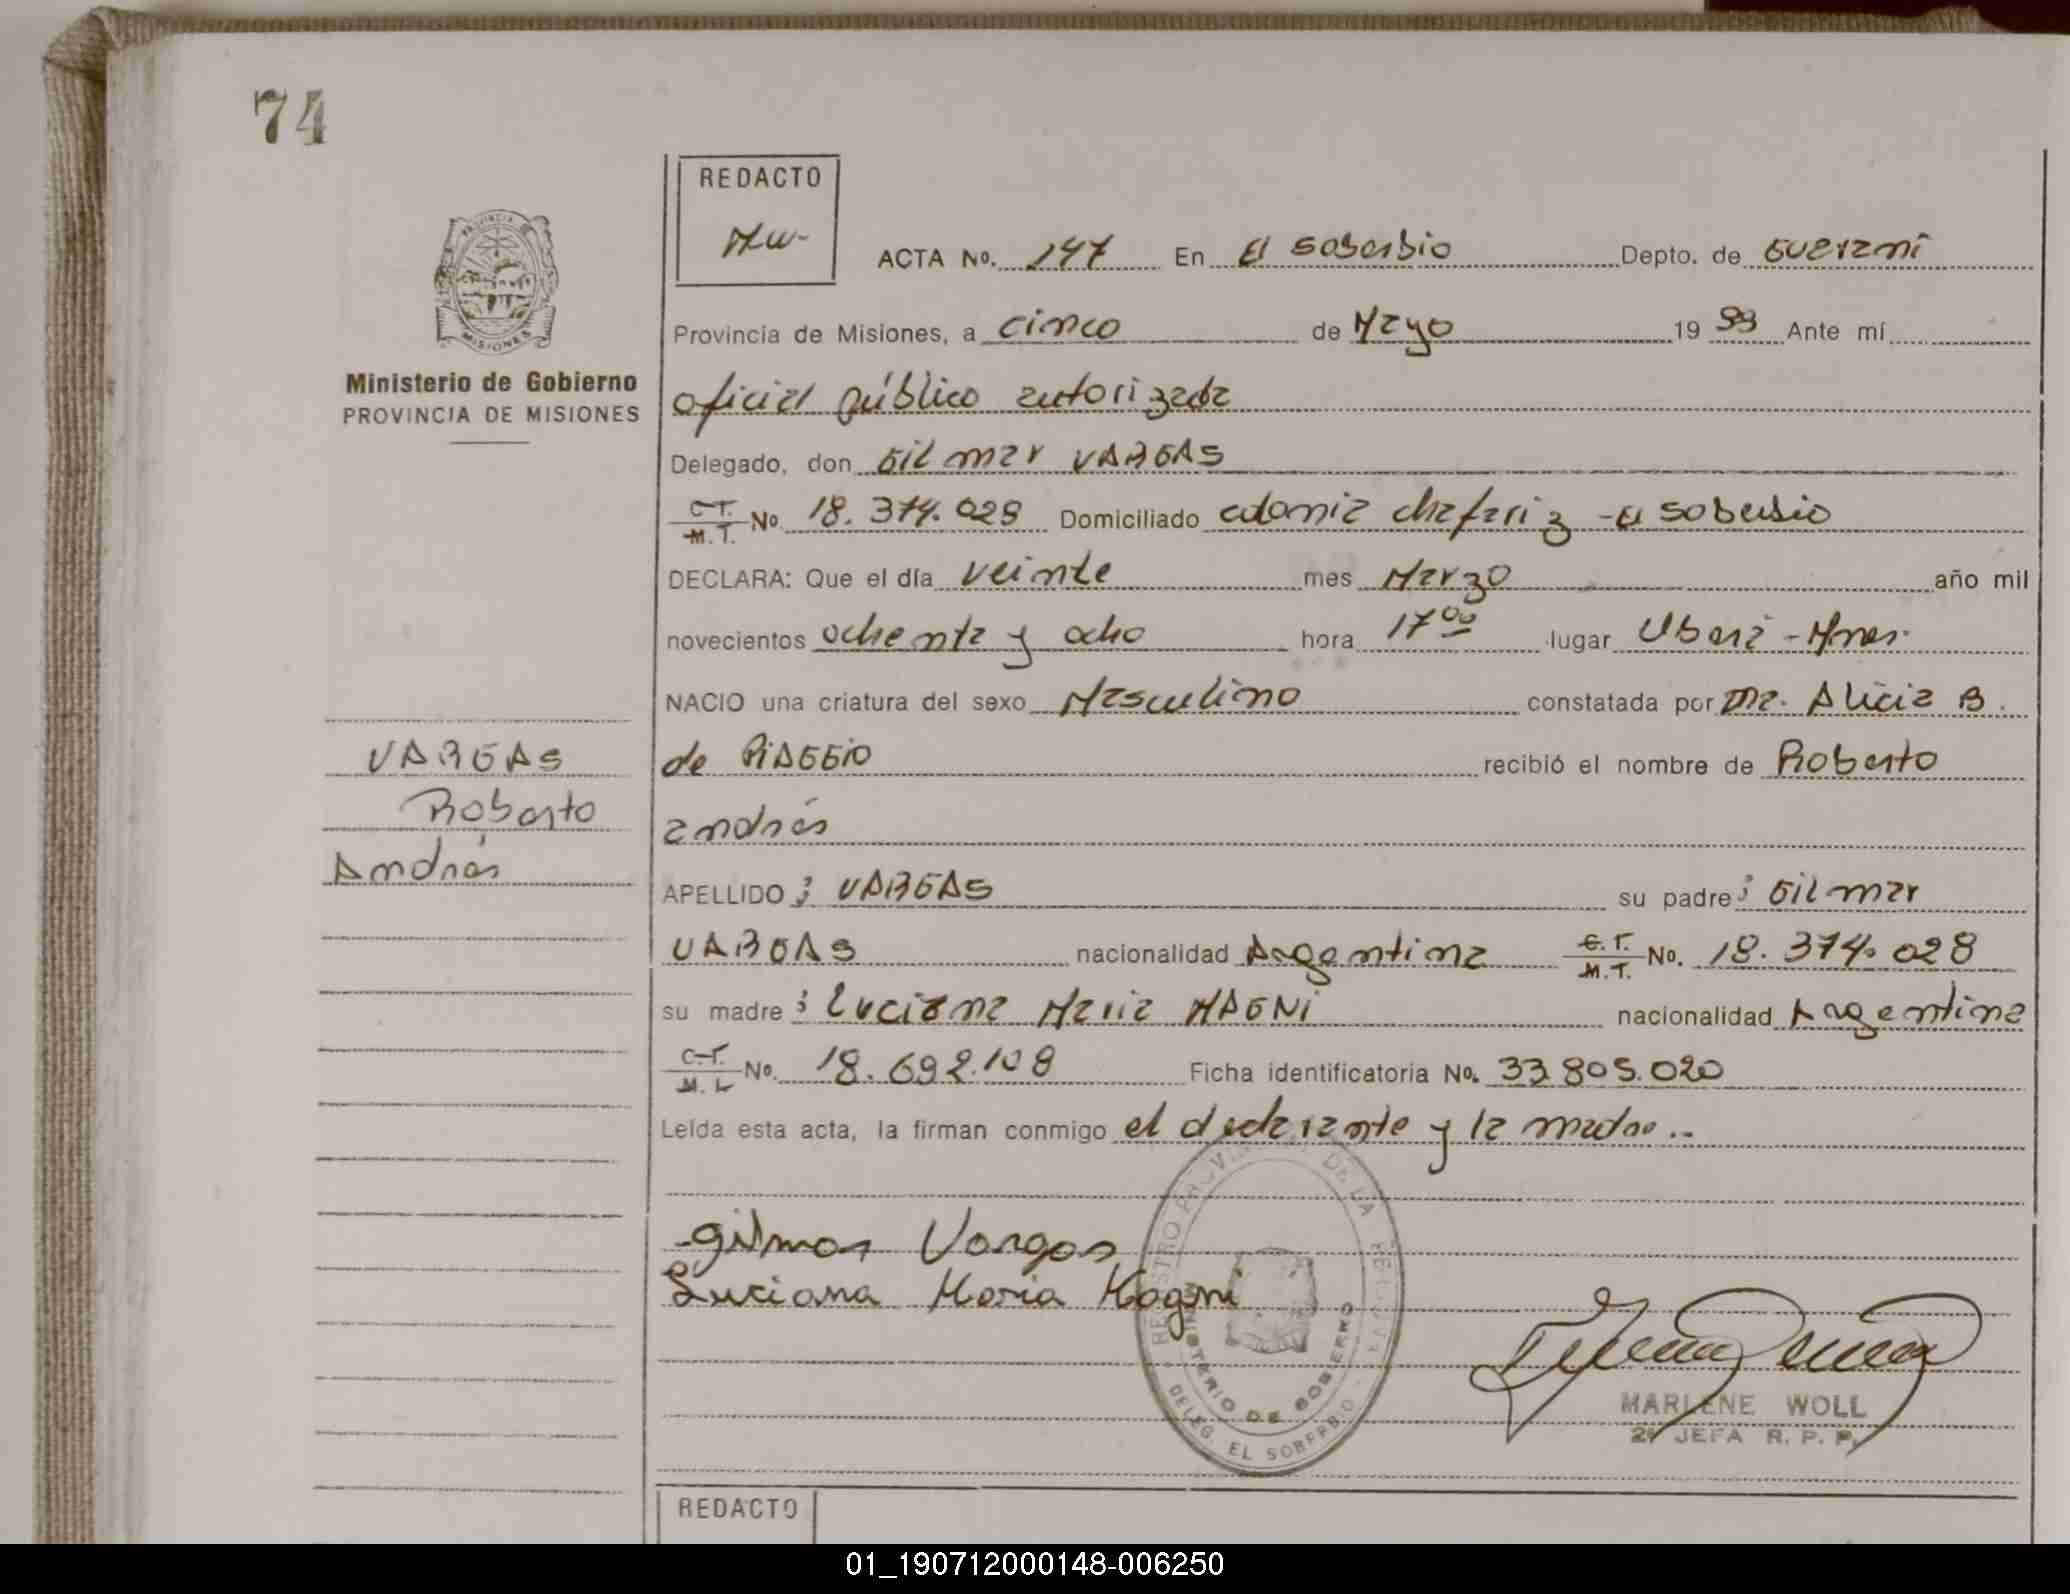 74
REDACTO
MW-
ACTA No. 147 En El Soberbio Depto. de Guarani
Provincia de Misiones, a cinco de Mayo 19 99 Ante mí
oficial público autorizada
Delegado, don Gilmar VARGAS
C.T. M.T. No 18.374.028 Domiciliado colonia chafariz - El Soberbio
DECLARA: Que el día veinte mes Marzo año mil
novecientos ochenta y ocho hora 17 00 lugar Oberá - Mnes.
NACIO una criatura del sexo Masculino constatada por Dra. Alicia B.
de PIAGGIO recibió el nombre de Roberto
andrés
APELLIDO : VARGAS su padre : Gilmar
VARGAS nacionalidad Argentina C.T. M.T. No. 18.374.028
su madre : Luciana Maria MAGNI nacionalidad Argentina
C.T. No. 18.692.108 Ficha identificatoria No. 33.805.020
Leída esta acta, la firman conmigo el declarante y la madre..
Gilmar Vargas
Luciana Maria Magni
Ministerio de Gobierno
PROVINCIA DE MISIONES
VARGAS
Roberto
Andrés
PROVINCIA
MISIONES
REGISTRO PROVINCIAL DE LAS PERSONAS
MINISTERIO DE GOBIERNO
DELEG. EL SOBERBIO
MARLENE WOLL
2ª JEFA R. P. P.
REDACTO
01_190712000148-006250